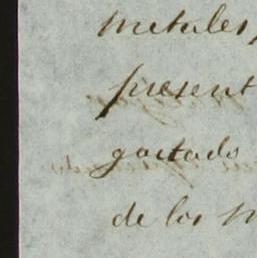 metales,
present
gastado
de los m